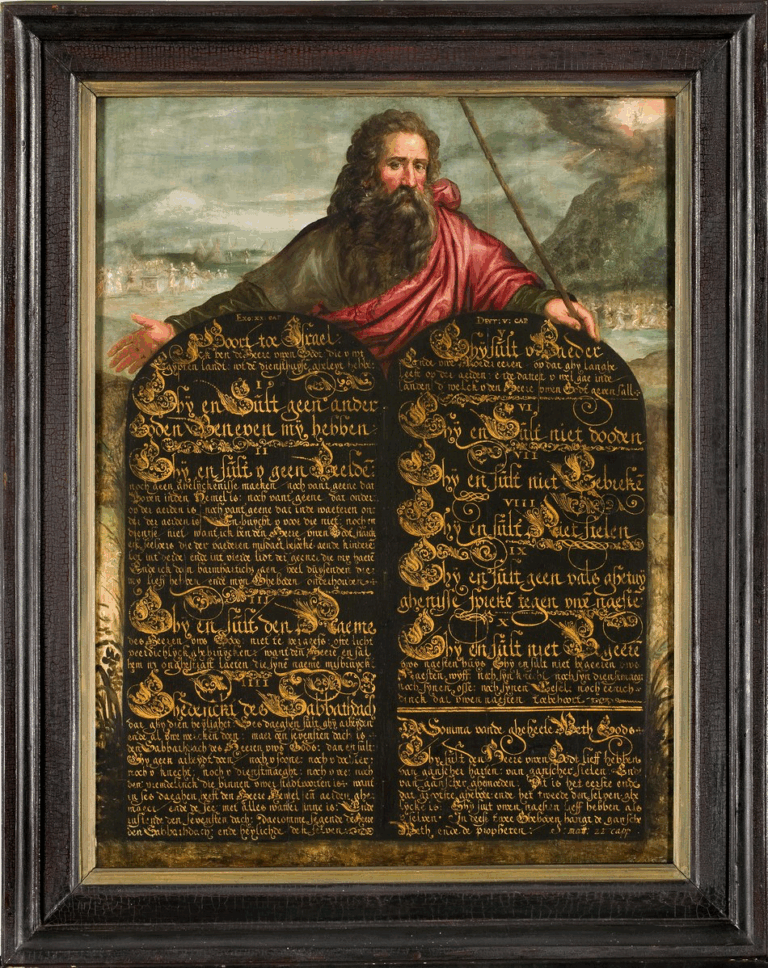 Exo: xx. cap
Hoort toe Israel.
Ick ben de Heere uwen Godt die u wt
Egypten landt: wt de diensthuyse, geleyt hebbe
I
Ghy en Sult geen ander
Goden Beneven my hebben
II
Ghy en sult u geen Beelde:
noch geen ghelyckenisse maeken noch vant geene dat
Boven inden Hemel is: noch vant geene dat onder:
op der aerden is, noch vant geene dat inde waeteren on:
der der aerden is: En buycht u voor die niet: noch en
dientse niet want ick ben den Heere uwen God,
int derde ende int vierde lidt der geener die my haete
Ende ick doen barmharticheyt aen veel duysenden die
my lieff hebben ende myn Gheboden onderhouden
III
Ghy en sult den Naeme
des Heeren uws Godts niet te
want den Heere en sal
hem niet ongestraft laeten die syne naeme misbruyckt
IIII
Ghedenckt des Sabbathdach
dat ghy dien heylighet Ses daeghen sult ghy arbeyden
ende al uwe wercken doen: maer den sevensten dach is
den Sabbathdach des Heeren uws Gods: dan en sult
Ghy geen arbeydt doen noch u soone: noch u dochter:
noch u knecht: noch u dienstmaeght: noch u vee: noch
den vremdelinck die binnen uwer stadt poorten is: want
in ses daeghen heeft den Heere Hemel en aerden ghe
maect ende de zee met alles wat daer inne is: Ende
ruste den sevensten dach: Daeromme segende de Heere
den Sabbathdach ende heylichde den selven
Deut: v: cap
Ghy sult u Vaeder
Ende uwe Moeder eeren op dat ghy langhe
leeft op der aerden: ende dattet u wel gae inde
landen d welck u den Heere uwen Godt geven sall
VI
Ghy en Sult niet dooden
VII
Ghy en sult niet Eebreke
VIII
Ghy en sult Niet stelen
IX
Ghy en sult geen vals ghetuy
ghenisse spreke tegen uwe naeste
X
Ghy en sult niet Begeere
uws naesten huys Ghy en sult niet begeeren uws
Naesten wyff noch syn knecht noch syn dienstmaecht
noch synen osse noch synen Eesel: noch eenich
dinck dat uwen naesten toebehoort
De Somma vande gheheele Weth Gods
Ghy sult den Heere uwen Godt lieff hebben
van gantscher harten: van gantscher sielen En
van gantscher ghemoeden Dit is het eerste ende
dat grootste ghebodt ende het tweede den selven ghe
lyck is: Ghy sult uwen naesten lieff hebben als
u selven In deese twee Gheboden hangt de gansche
Weth, ende de propheten: S: mat: 22 capp.